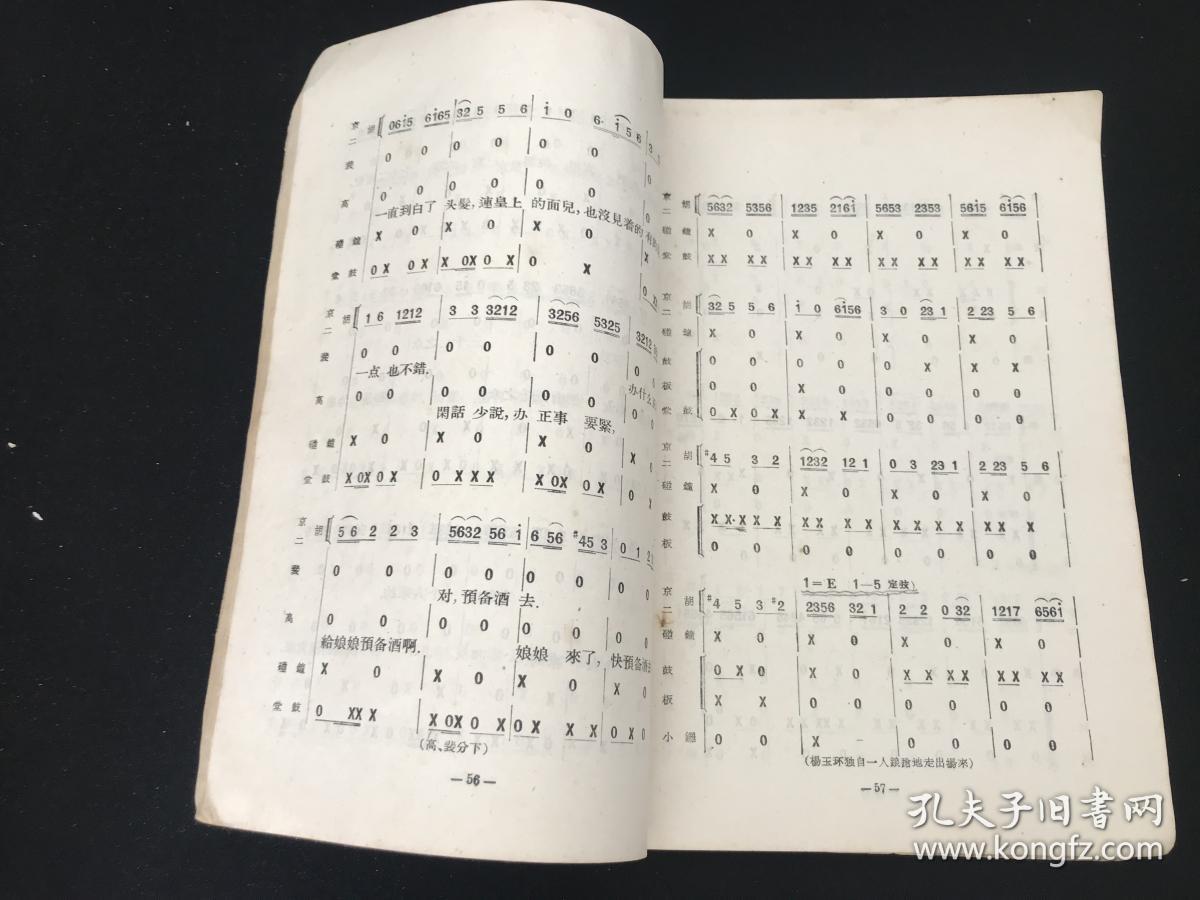 京二胡 061̇5 61̇65 325 56 1̇ 0 6·1̇56
裴 0 0 0 0 0 0 0
高 0 0 0 0 0 0 0
一直到白了 头髮, 連皇上 的面兒, 也沒見着的
碰鐘 X 0 X 0 X 0 X
堂鼓 0X 0X X 0X 0 X 0 X
京二胡 16 1212 3 3 3212 3256 5325 3212
裴 0 0 0 0 0 0 0
一点 也不錯.
高 0 0 0 0 0 0 0
閑話 少說, 办 正事 要緊, 办什么
碰鐘 X 0 X 0 X 0 X
堂鼓 X0X 0X 0 XXX X0X 0X
京二胡 56 2 2 3 5632 561̇ 656 #453 0 1
裴 0 0 0 0 0 0 0 0
对, 預备酒 去.
高 0 0 0 0 0 0 0 0
給娘娘預备酒啊. 娘娘 來了, 快預备酒
碰鐘 X 0 X 0 X 0 X 0
堂鼓 0 XXX X0X 0X 0X XX X 0X
(高、裴分下)
—56—
京二胡 5632 5356 1235 2161̇ 5653 2353 561̇5 61̇56
碰鐘 X 0 X 0 X 0 X 0
堂鼓 XX XX XX XX XX XX XX XX
京二胡 325 56 1̇ 0 61̇56 3 0 23 1 2 23 5 6
碰鐘 X 0 X 0 X 0 X 0
鼓 0 0 0 0 0 X X X
板 0 0 X 0 0 0 0 0
堂鼓 0X 0X X X 0 0 0 0
京二胡 #45 32 1232 121 03 231 223 56
碰鐘 X 0 X 0 X 0 X 0
鼓 XX·XX XX XX XX XX XX X
板 0 0 0 0 0 0 0 0
1=E 1—5 定弦)
京二胡 #4 5 3 #2 2356 321 2 2 0 32 1217 6561̇
碰鐘 X 0 X 0 X 0 X 0
鼓 0X0 0 0 X XXX XX XX
板 X X 0 0 0 0 0 0
小鑼 0 0 X 0 0 0 0
(楊玉环独自一人踉蹌地走出場來)
—57—
孔夫子旧书网
www.kongfz.com